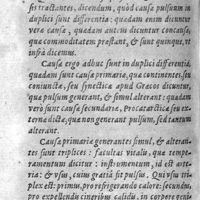 si tractantes, dicendum, quòd causæ pulsuum in
duplici sunt differentia: quædam enim dicuntur
vera causa, quædam autem dicuntur concausæ,
quæ commoditatem præstant, & sunt quinque, vt
infrà dicemus.
Causæ ergo adhuc sunt in duplici differentia,
quædam sunt causæ primariæ, quæ continentes, seu
coniunctæ, seu synectica apud Græcos dicuntur,
quæ pulsum generant, & simul alterant: quædam
verò sunt causæ secundariæ, Procatarctica seu ex
terna dictæ, quæ non generant pulsum, sed tantum
alterant.
Causæ primariæ generantes simul, & alteran-
tes sunt triplices: facultas vitalis, quæ tempe-
ramentum dicitur: instrumentum, id est arte-
ria: & vsus, cuius gratia fit pulsus. Qui vsus tri
plex est: primò, pro refrigerando calore: secundò,
pro expellendis cineribus calidis, in corpore geni-